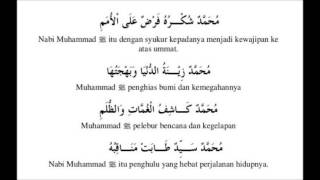 مُحَمَّدٌ شُكْرُهُ فَرْضٌ عَلَى ٱلْأُمَمِ
Nabi Muhammad ﷺ itu dengan syukur kepadanya menjadi kewajipan ke
atas ummat.
مُحَمَّدٌ زِينَةُ الدُّنْيَا وَبَهْجَتُهَا
Muhammad ﷺ penghias bumi dan kemegahannya
مُحَمَّدٌ كَاشِفُ الْغُمَّاتِ وَالظُّلَمِ
Muhammad ﷺ pelebur bencana dan kegelapan
مُحَمَّدٌ سَيِّدٌ طَابَتْ مَنَاقِبُهُ
Nabi Muhammad ﷺ itu penghulu yang hebat perjalanan hidupnya.